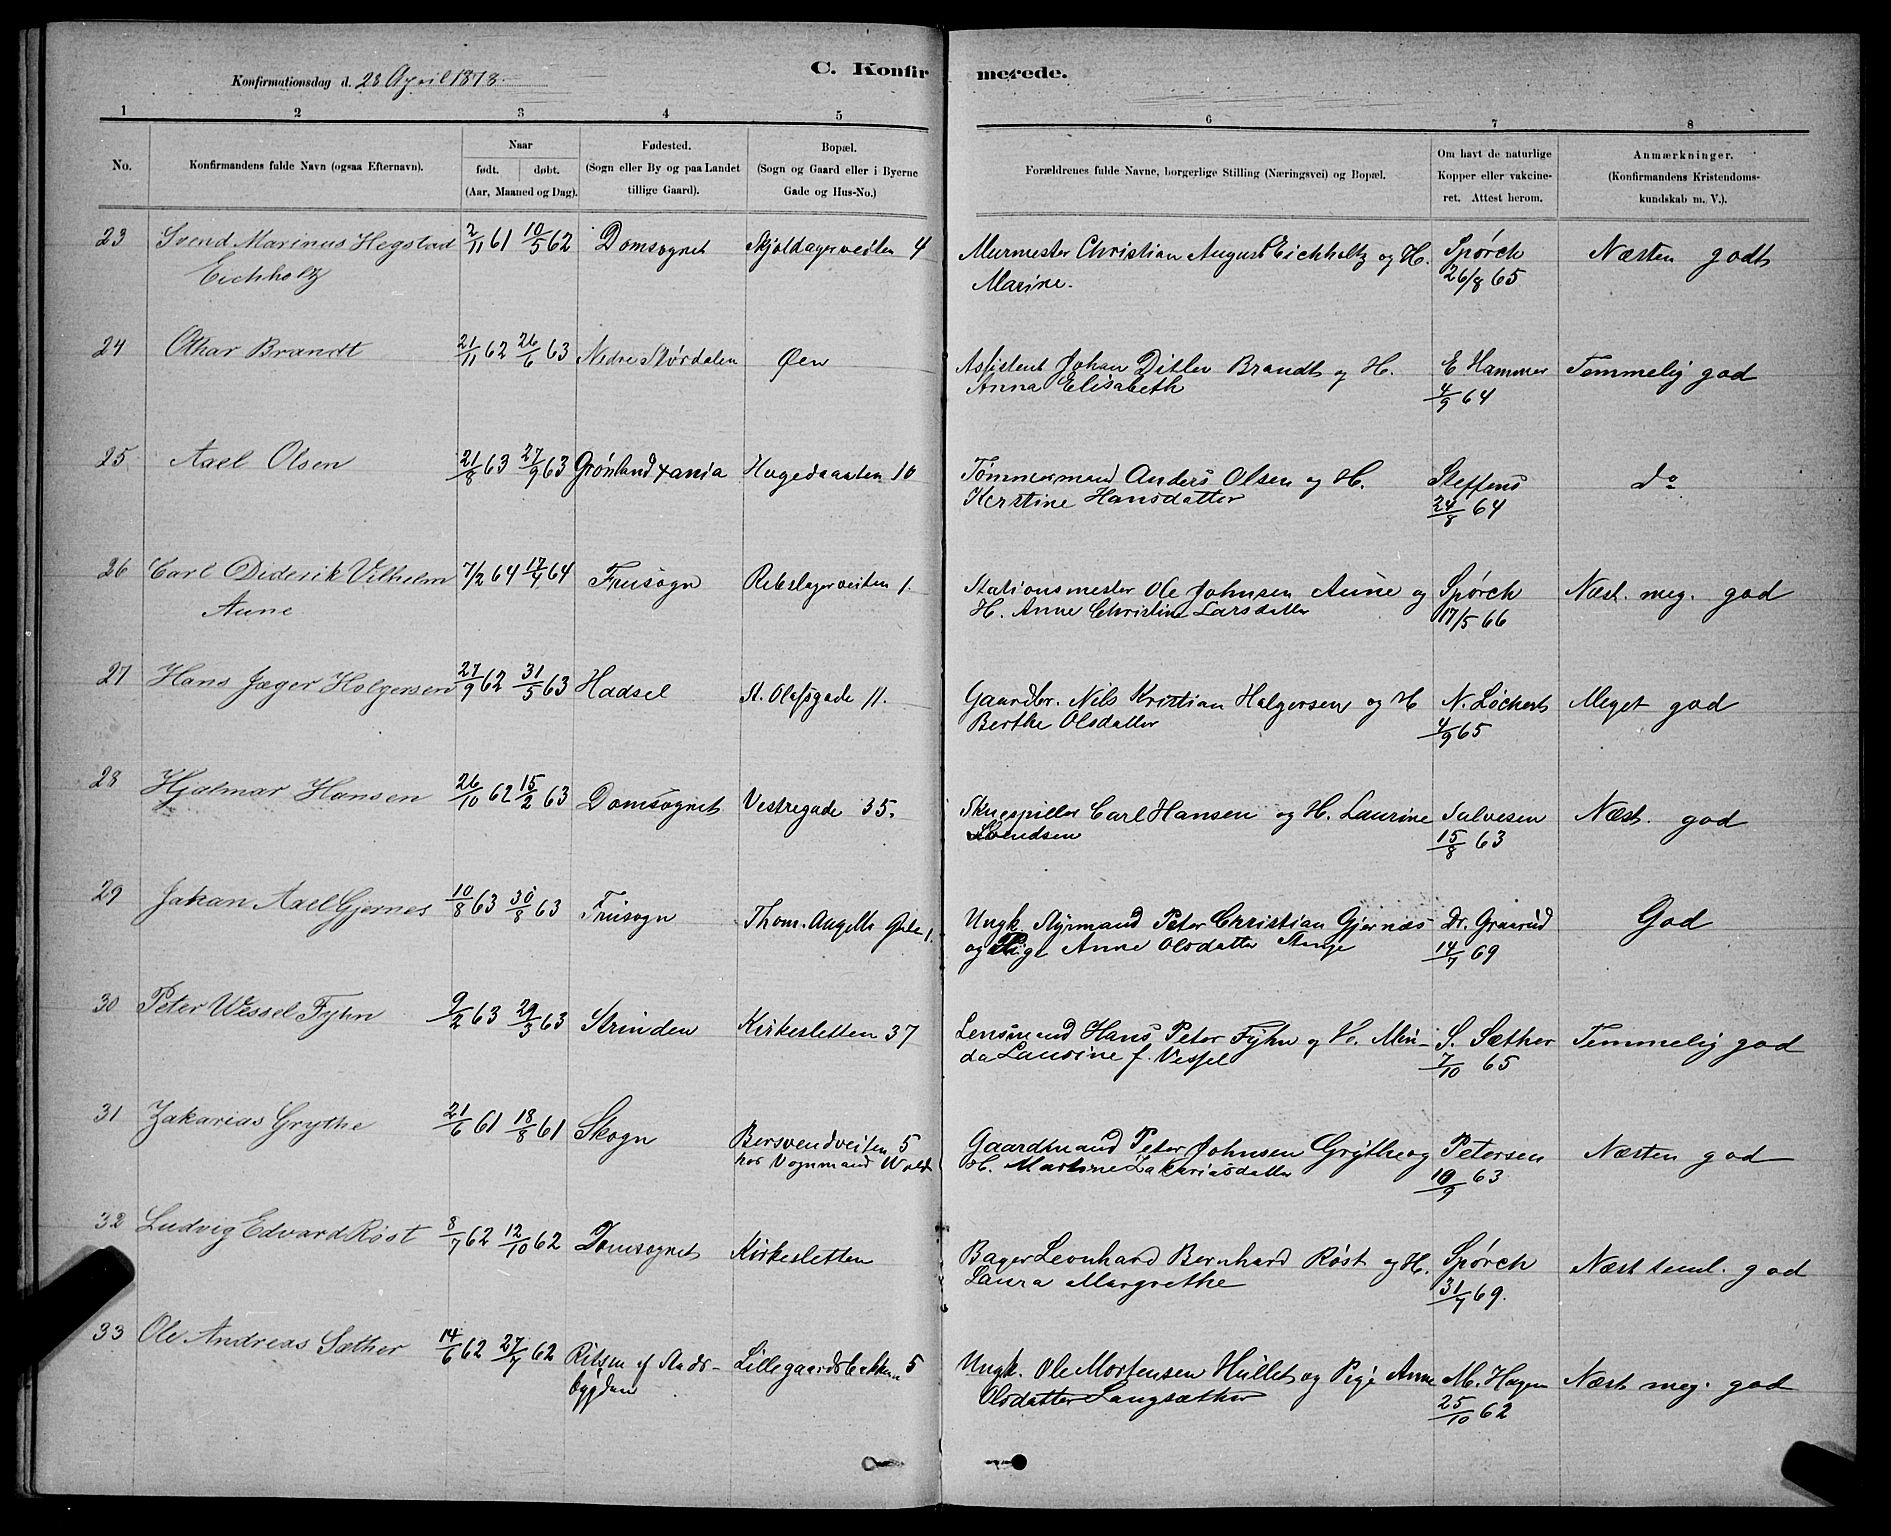 C. Konfirmerede.
Konfirmationsdag d. 28 April 1878.
1 2 3 4 5 6 7 8
No.
Konfirmandens fulde Navn (ogsaa Efternavn).
Naar
født. døbt.
(Aar, Maaned og Dag).
Fødested.
(Sogn eller By og paa Landet
tillige Gaard).
Bopæl.
(Sogn og Gaard eller i Byerne
Gade og Hus-No.)
Forældrenes fulde Navne, borgerlige Stilling (Næringsvei) og Bopæl.
Om havt de naturlige
Kopper eller vakcine-
ret. Attest herom.
Anmærkninger.
(Konfirmandens Kristendoms-
kundskab m. V.).
23 Svend Marinus Hegstad 2/11 61 10/5 62 Domsognet Skjoldagerveiten 4 Murmester Christian August Eichholtz og H. Spørck Næsten godt
Eichholtz Marine. 26/8 65
24 Othar Brandt 21/11 62 26/6 63 Nedre Størdalen Øen Assistent Johan Ditlev Brandt og H. E Hammer Temmelig god
Anna Elisabeth 4/9 64
25 Axel Olsen 21/8 63 27/9 63 Grønland Xania Hagedsaaten 10 Tømmermand Anders Olsen og H. Steffens do
Kerstine Hansdatter 24/8 64
26 Carl Diderik Vilhelm 7/2 64 17/4 64 Fruesogn Rebslagerveiten 1. Stationsmester Ole Johnsen Aune og Spørck Næst. meg. god
Aune H. Anne Christine Larsdatter 17/5 66
27 Hans Jæger Holgersen 27/9 62 31/5 63 Hadsel St. Olafsgade 11. Gaardbr. Nils Kristian Holgersen og H N. Løchert Meget god
Berthe Olsdatter 4/9 65
28 Hjalmar Hansen 26/10 62 15/2 63 Domsognet Vestregade 35. Skuespiller Carl Hansen og H. Laurine Salvesen Næst. god
Svendsen 15/8 63
29 Johan Axel Gjernes 10/8 63 30/8 63 Frusogn Thom. Angells Gade 1. Ungk. Styrmand Peter Christian Gjernæs Dr. Graarud God
og Pige Anne Olsdatter Stange 14/7 69
30 Peter Wessel Fyhn 9/2 63 29/3 63 Strinden Kirkesletten 37 Lensmand Hans Peter Fyhn og H. Min- S. Sæther Temmelig god
da Laurine f. Vessel 7/10 65
31 Zakarias Grythe 21/6 61 18/8 61 Skogn Bersvendveiten 5 Gaardmand Peter Johnsen Grythe og Petersen Næsten god
hos Vognmand Wold H. Martine Zakariasdatter 19/9 63
32 Ludvig Edvard Røst 8/7 62 12/10 62 Domsognet Kirkesletten Bager Leonhard Bernhard Røst og H. Spørck Næst teml. god
Laura Margrethe 31/7 69.
33 Ole Andreas Sæther 14/6 62 27/7 62 Ritsen af Aads- Lillegaardsbakken 5 Ungk. Ole Mortensen Hullet og Pige Anne M. Hagen Næst meg. god
bygden Olsdatter Langsæther 25/10 62